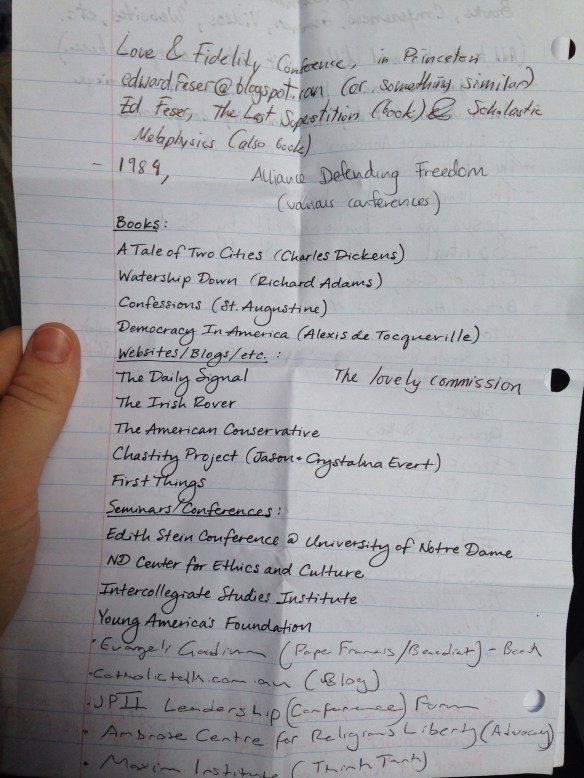 Love & Fidelity Conference, in Princeton
edwardfeser@blogspot.com (or something similar)
Ed Feser, The Last Superstition (book) & Scholastic
Metaphysics (also book)
- 1984, Alliance Defending Freedom
(various conferences)
Books:
A Tale of Two Cities (Charles Dickens)
Watership Down (Richard Adams)
Confessions (St. Augustine)
Democracy In America (Alexis de Tocqueville)
Websites/Blogs/etc.:
The Daily Signal The lovely commission
The Irish Rover
The American Conservative
Chastity Project (Jason + Crystalina Evert)
First Things
Seminars/Conferences:
Edith Stein Conference @ University of Notre Dame
ND Center for Ethics and Culture
Intercollegiate Studies Institute
Young America's Foundation
• Evangelii Gaudium (Pope Francis/Benedict) - Book
• Catholictalk.com.au (Blog)
• JPII Leadership (Conference) Forum
• Ambrose Centre for Religious Liberty (Advocacy)
• Maxim Institute (Think Tank)